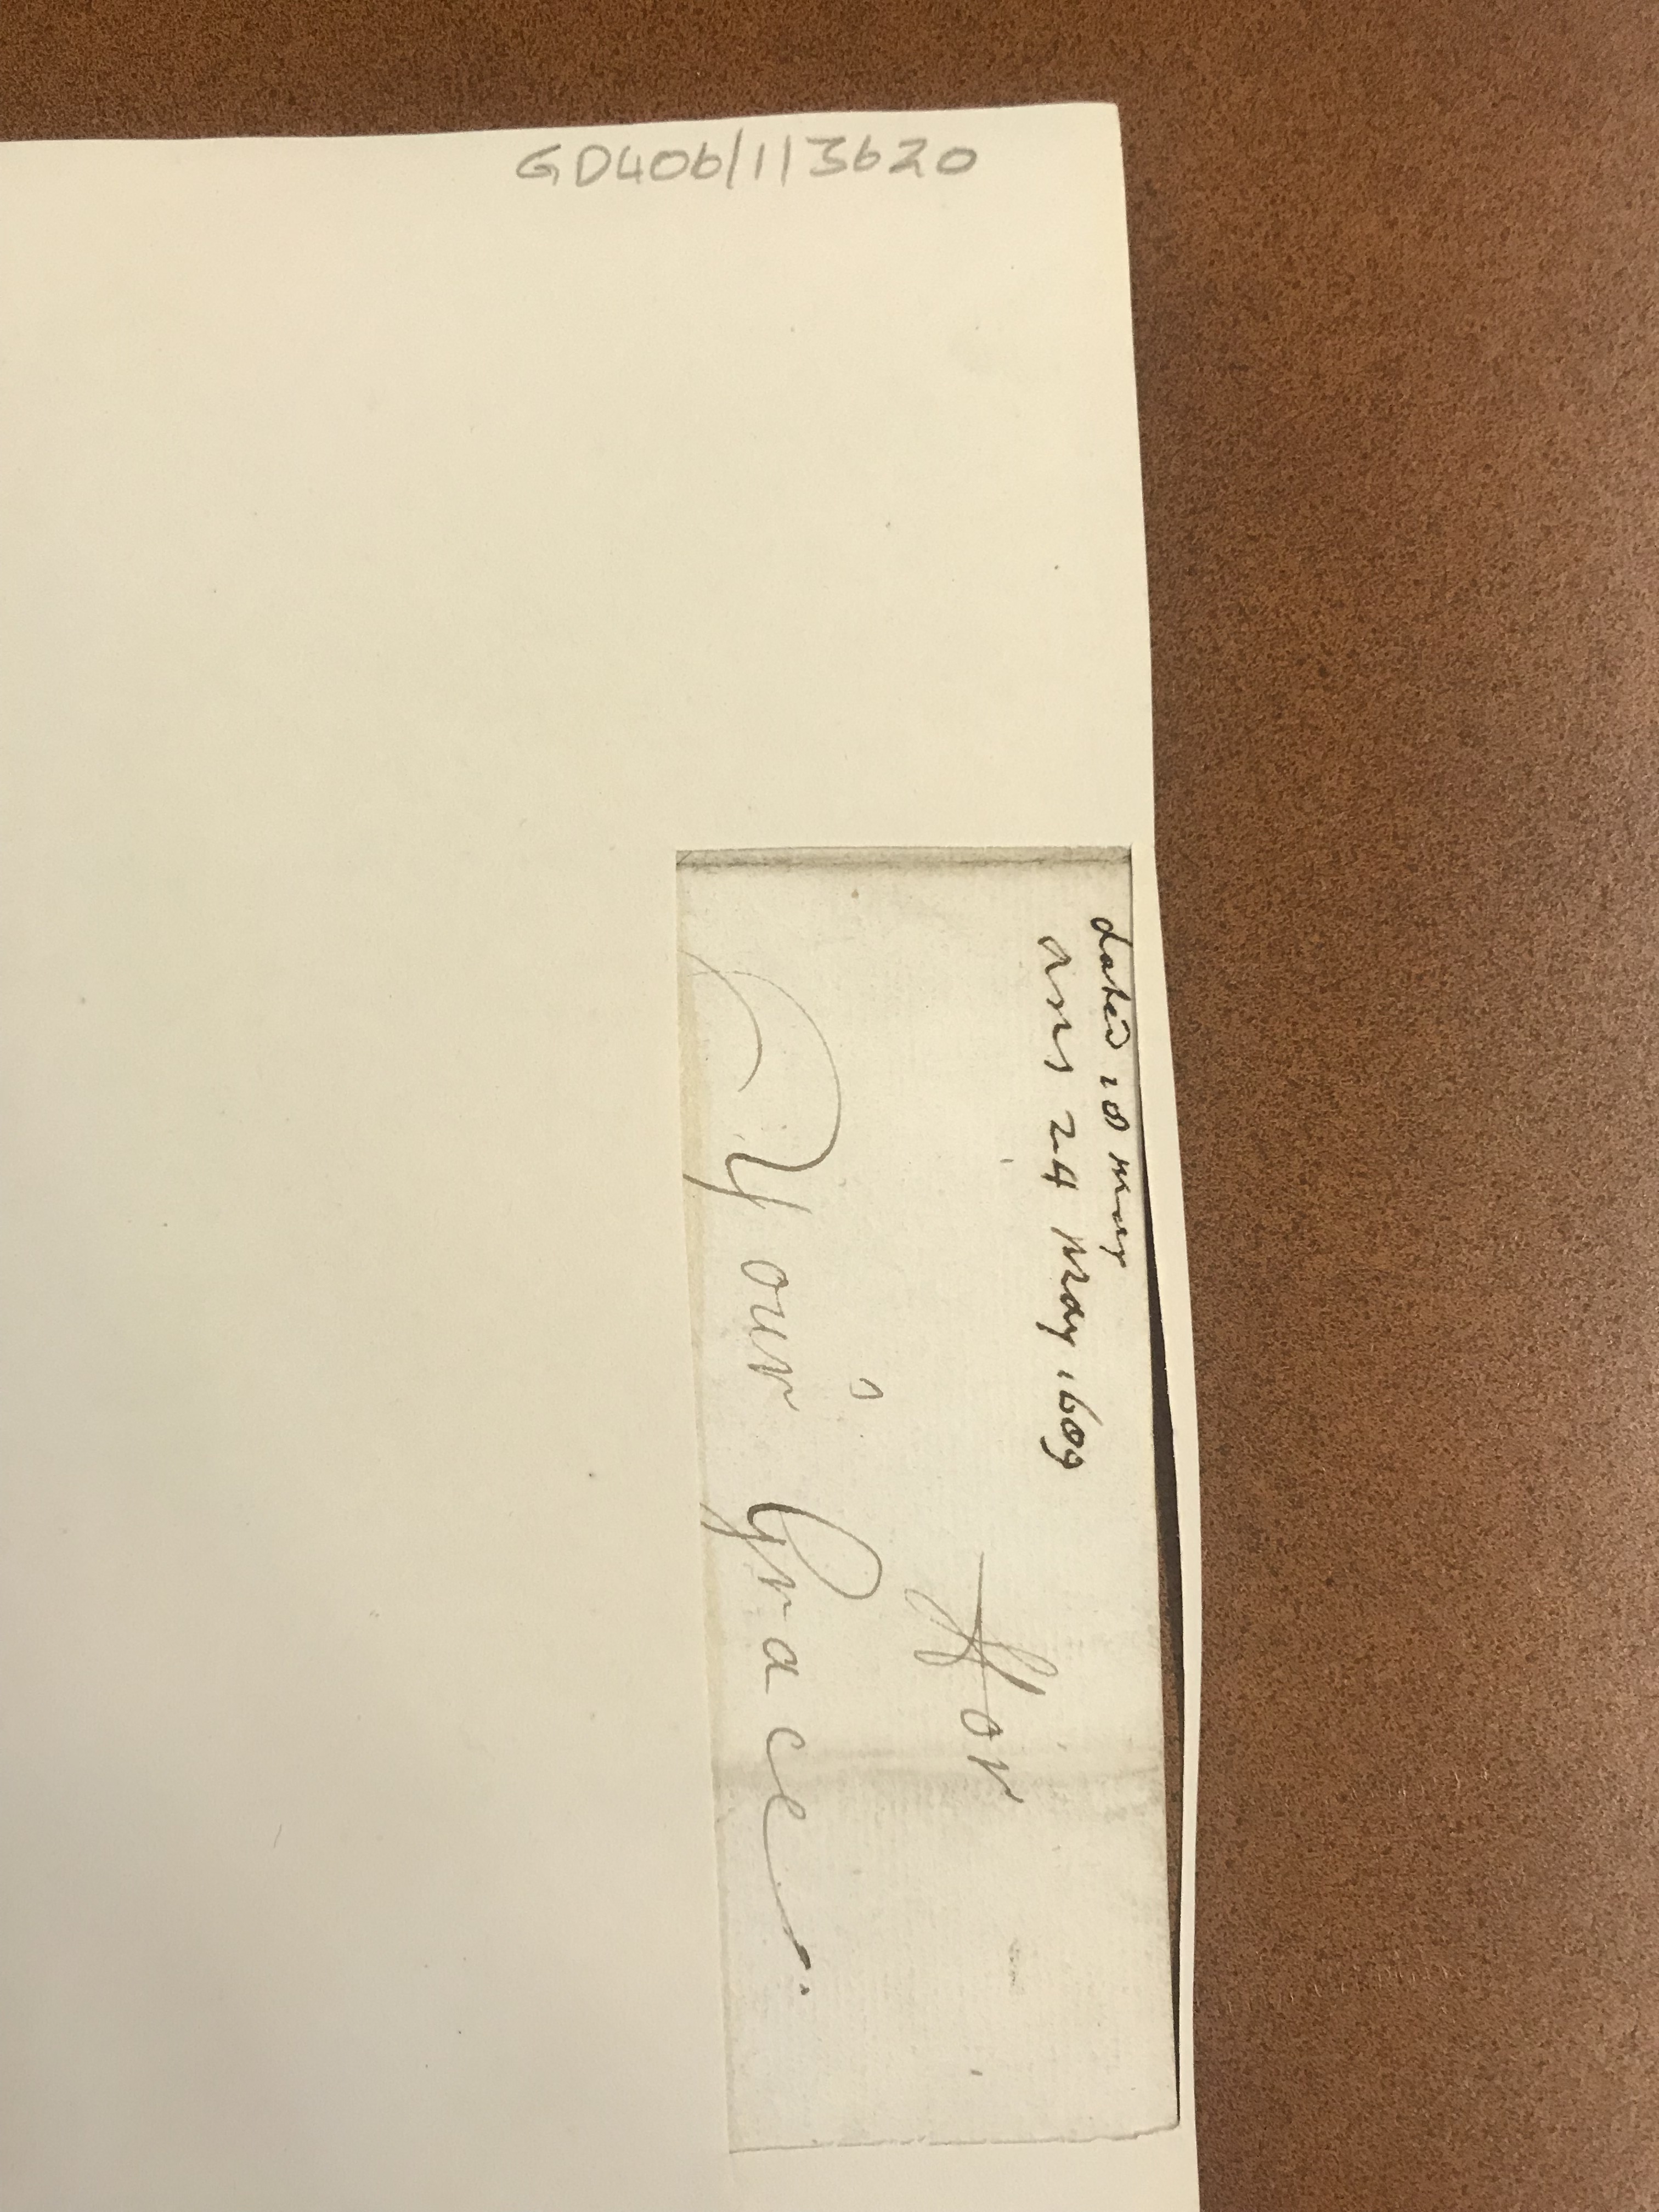 GD406/1/3620
dated 18 may
Ans 24 May 1689
ffor
Your Grace.